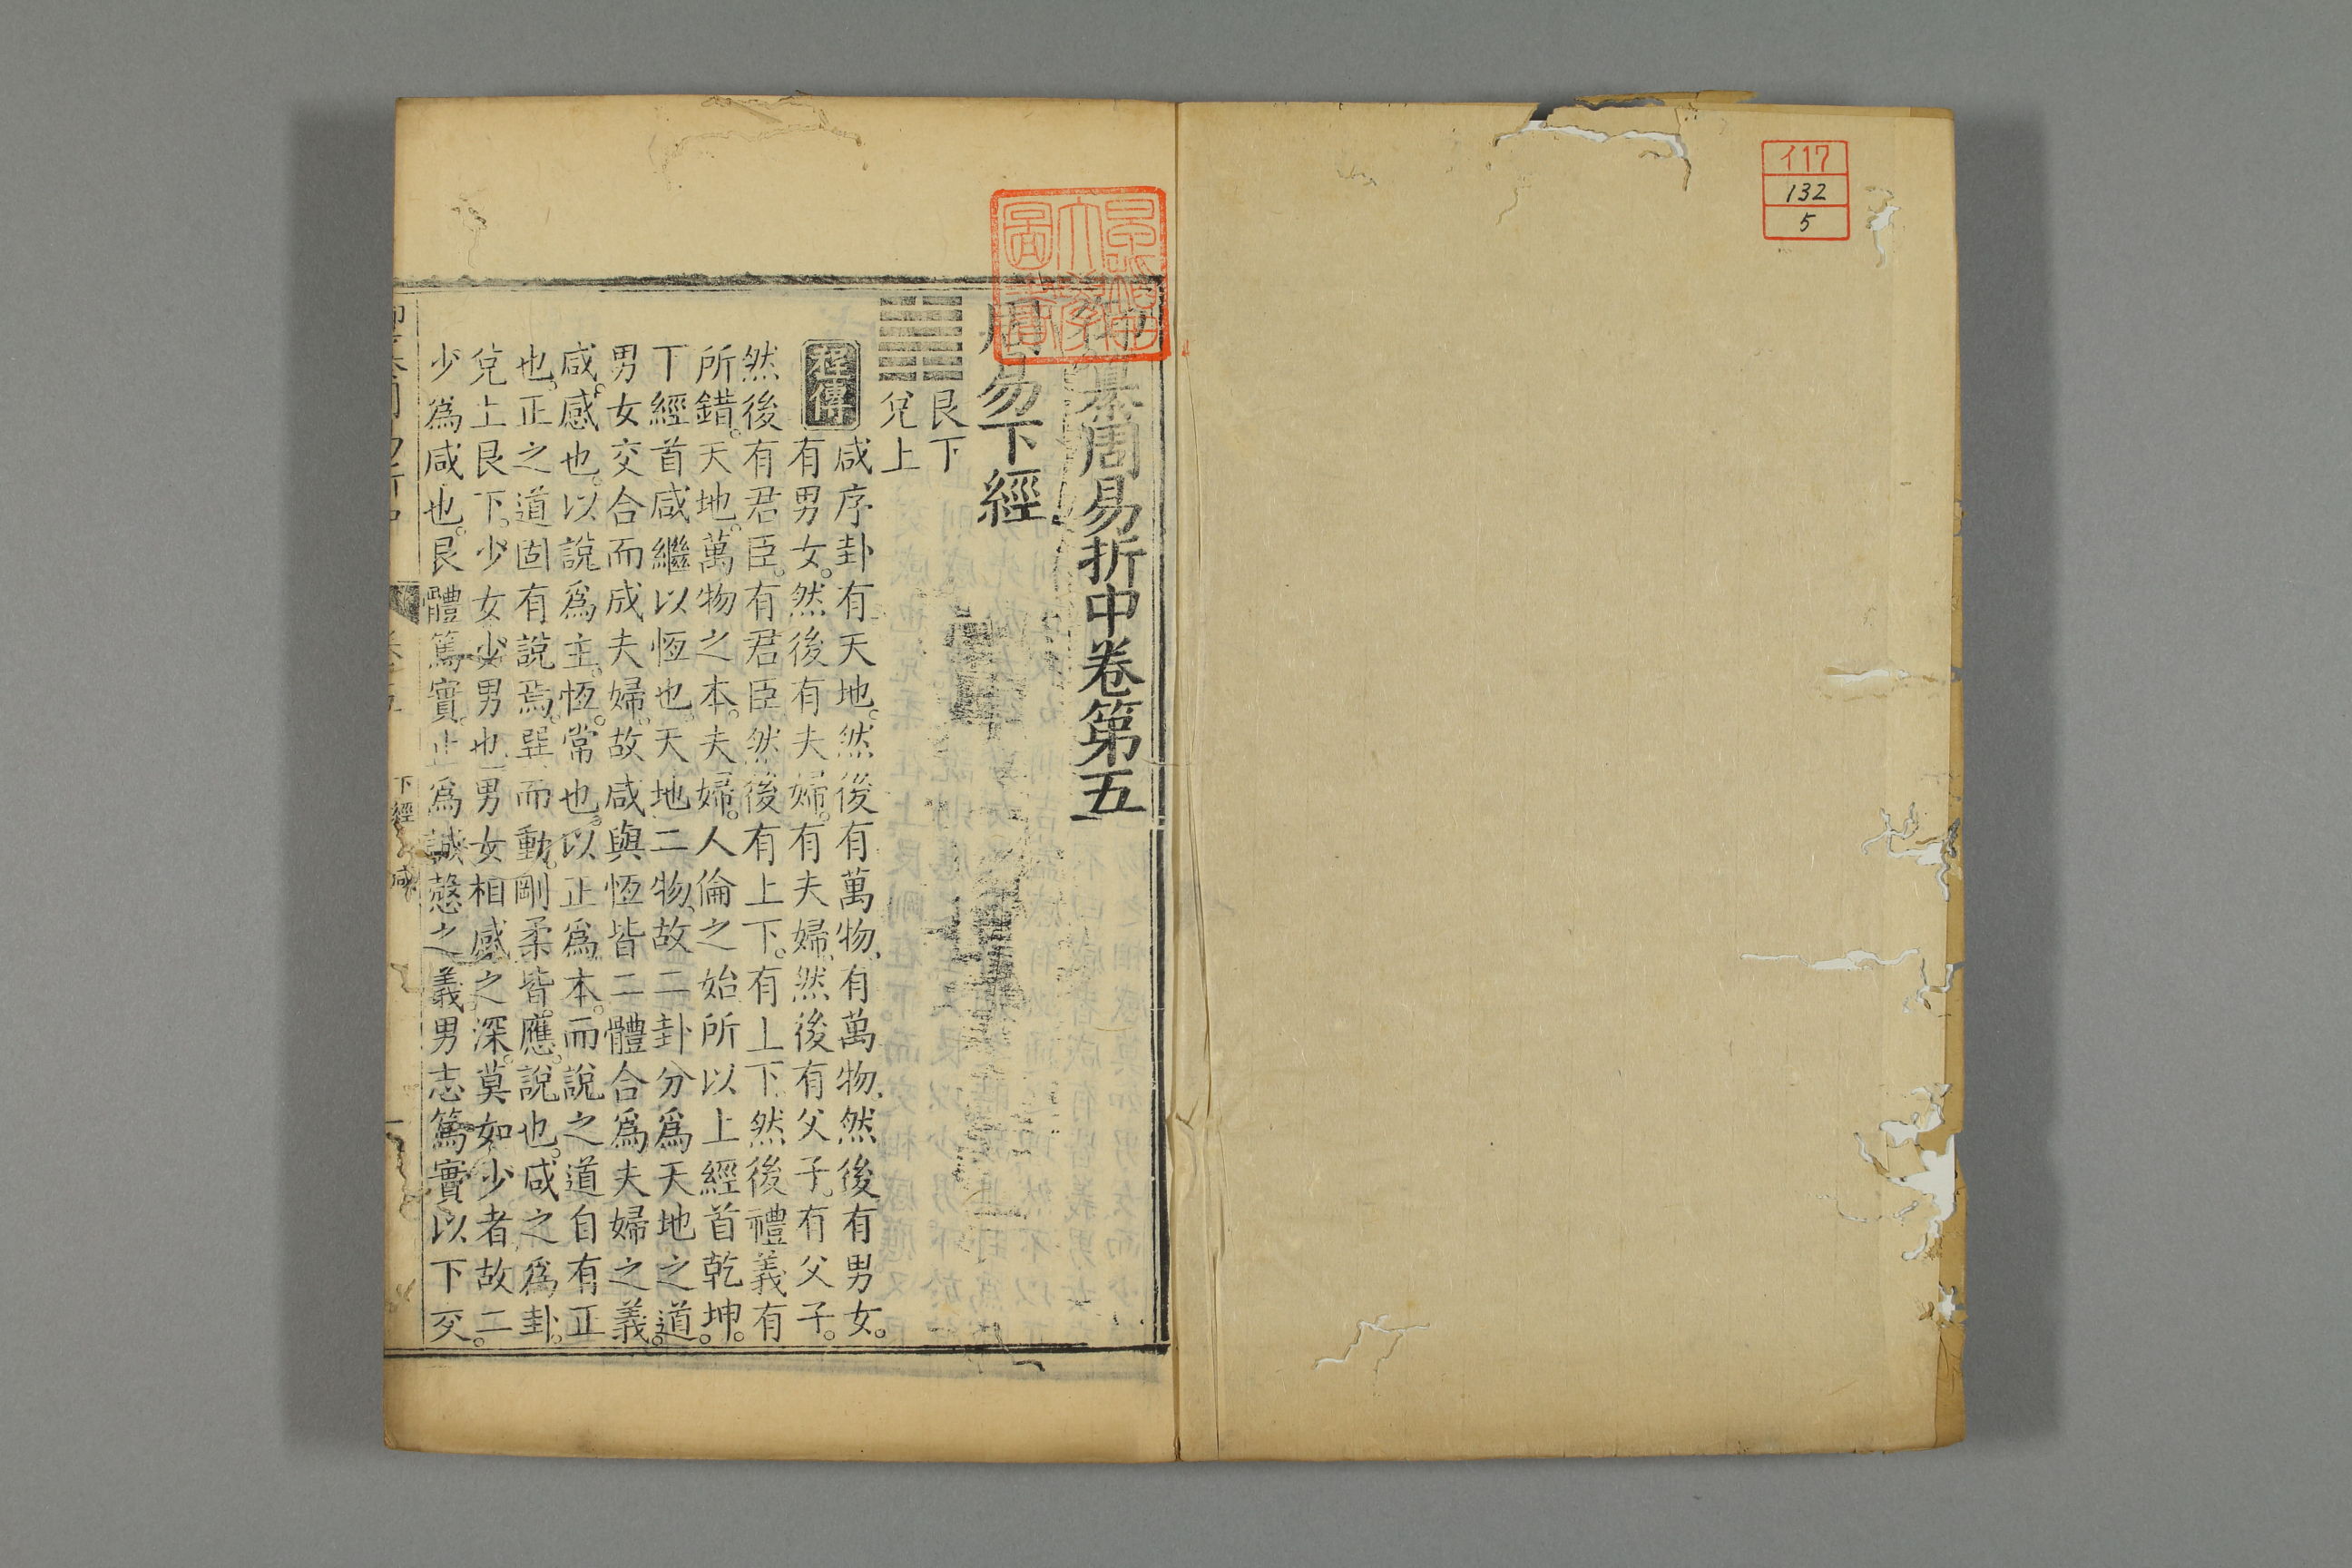 イ17
132
5
纂周易折中卷第五
周易下經
艮下
兌上
程傳
咸序卦有天地。然後有萬物、有萬物、然後有男女。
有男女。然後有夫婦。有夫婦、然後有父子。有父子。
然後有君臣。有君臣然後有上下。有上下然後禮義有
所錯。天地。萬物之本。夫婦。人倫之始所以上經首乾坤。
下經首咸繼以恆也。天地二物、故二卦分爲天地之道。
男女交合而成夫婦。故咸與恆皆二體合爲夫婦之義。
咸。感也。以說爲主。恆。常也。以正爲本。而說之道自有正
也。正之道固有說焉。巽而動。剛柔皆應。說也。咸之爲卦。
兌上艮下。少女少男也男女相感之深。莫如少者故二
少爲咸也。艮體篤實。止爲誠慤之義男志篤實以下交。
下經 咸